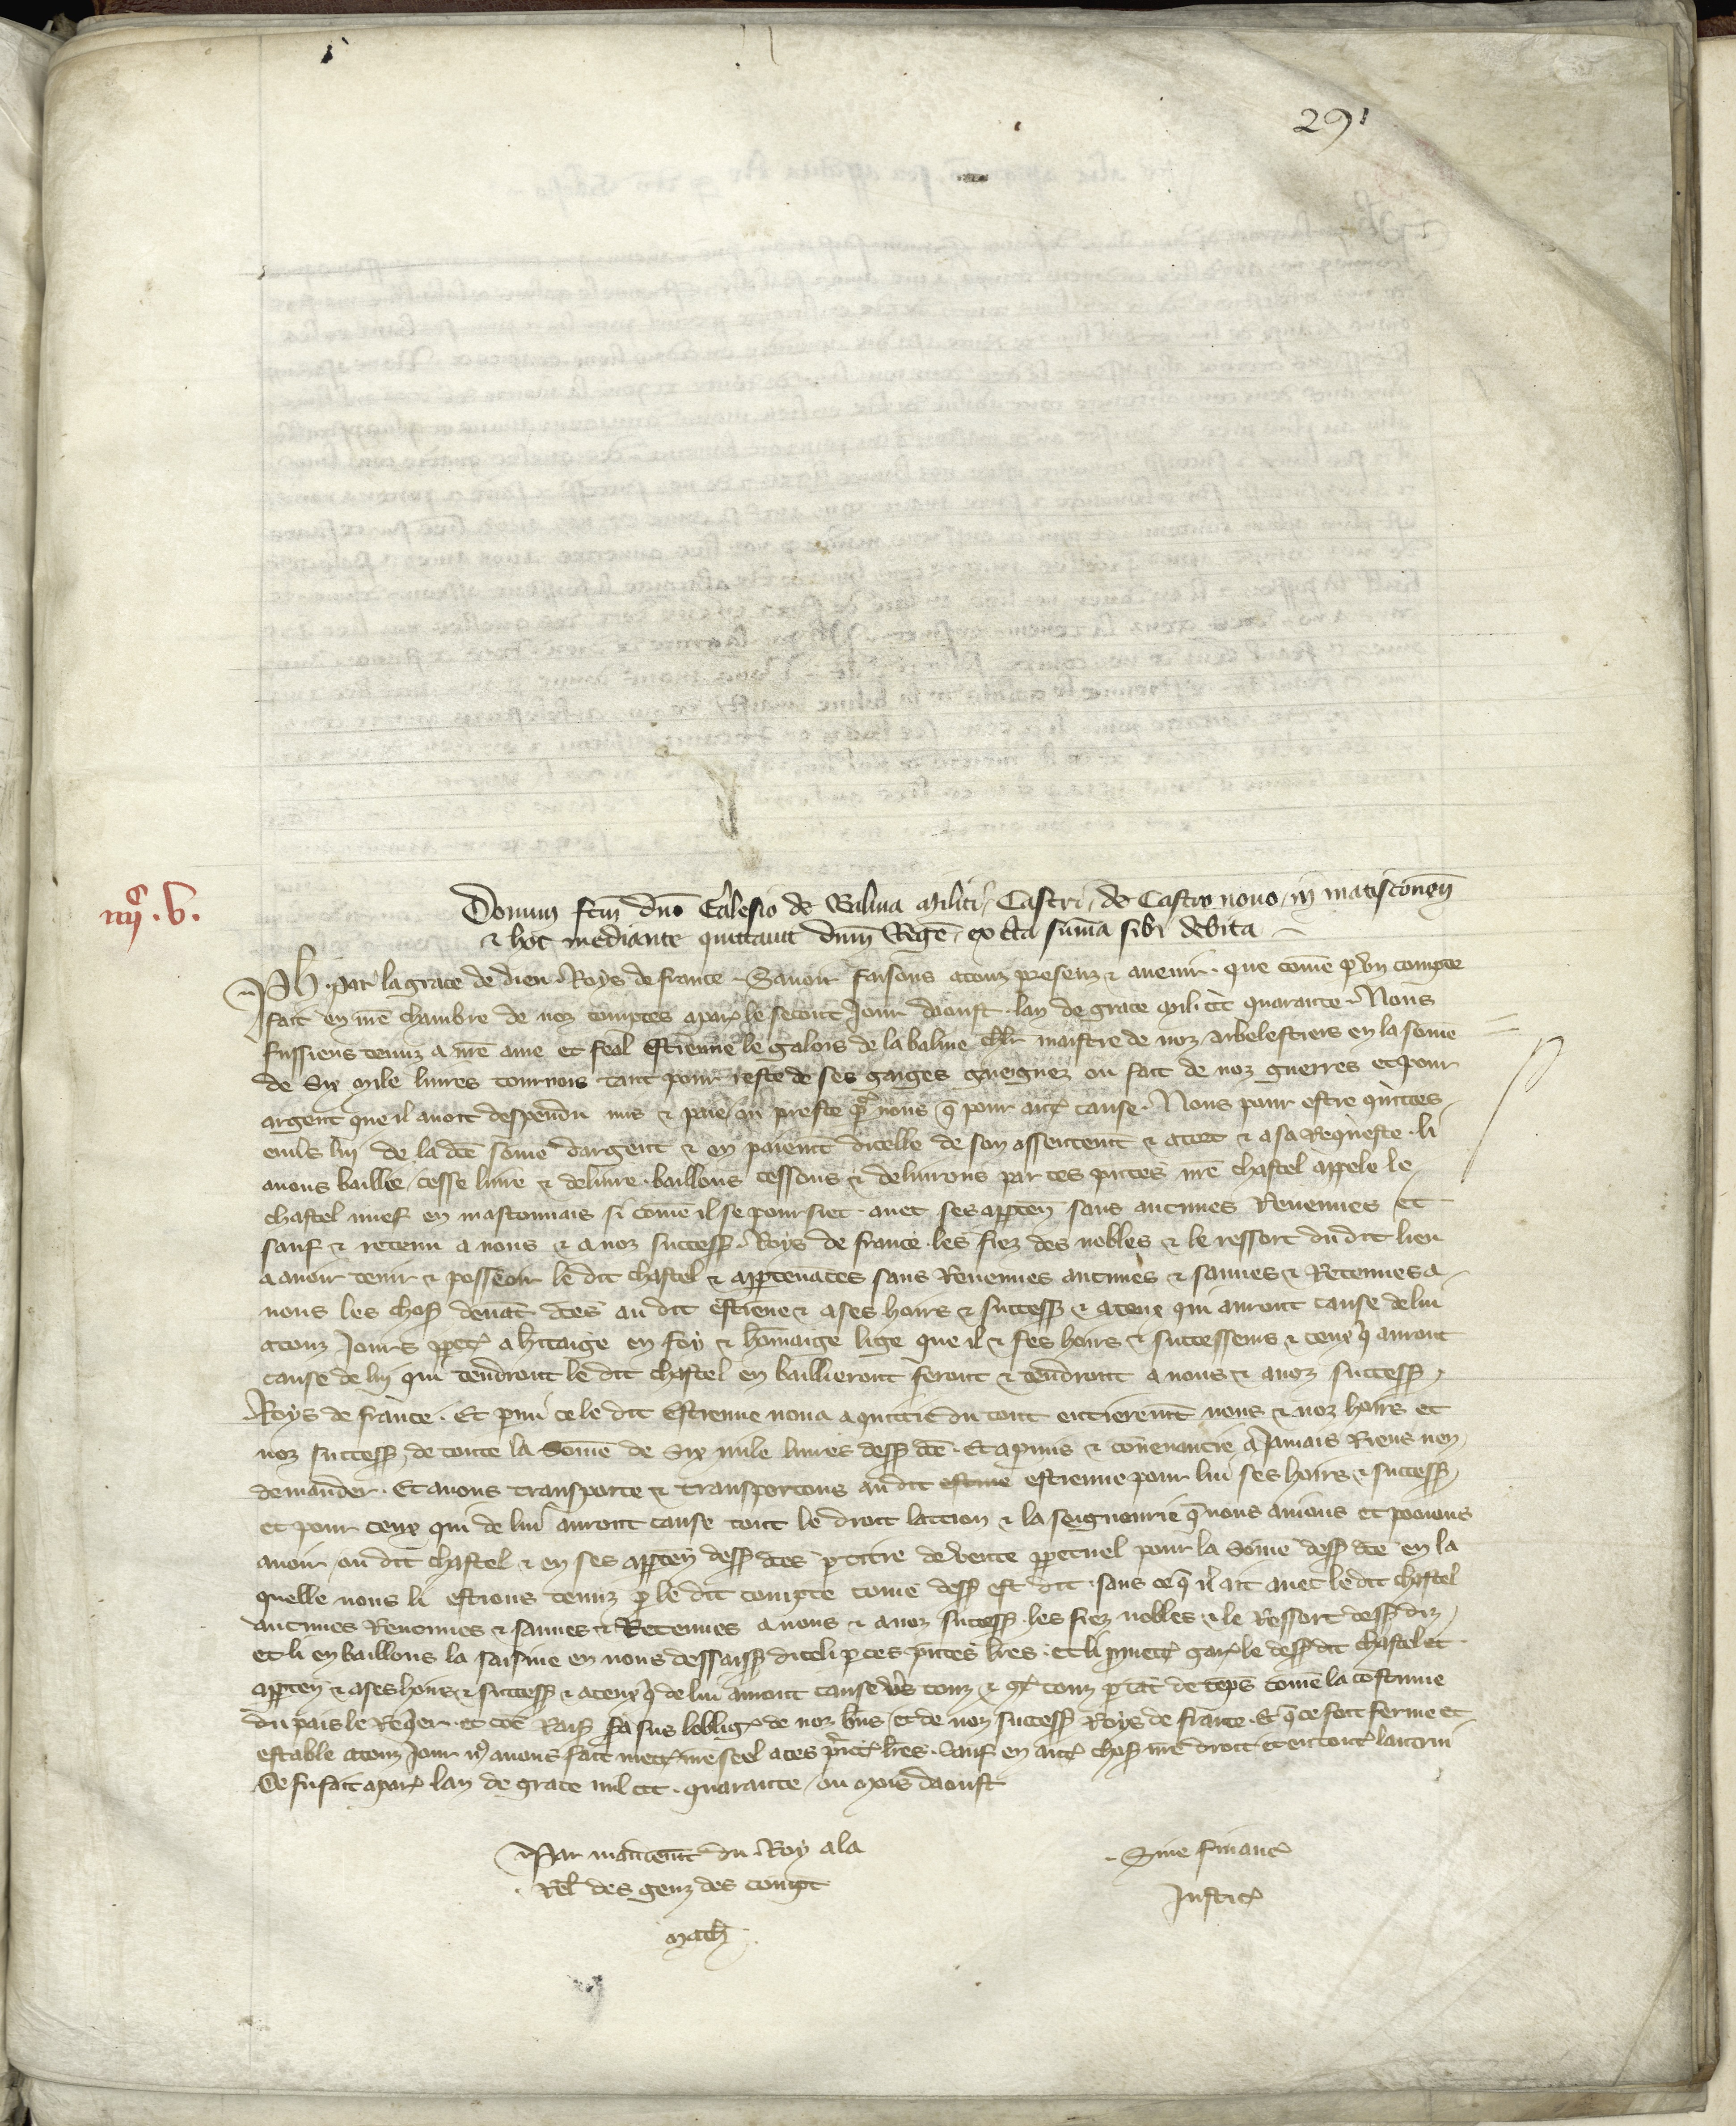 291
iiijc. v.
Donum fcm dno Galesio de Balma militi, Castri, de Castro novo, in matisconen
& hoc mediante quittavit dnm Regem, ex cta summa sibi debita
Ph. par la grace de dieu Roys de france. Savoir faisons a touz presenz & avenir. que come p un compte
fait en nre chambre de noz comptes a par le secont Jour daoust. lan de grace mil ccc quarante. Nous
fussiens tenuz a nre ame et feal Estienne le galois de la balme chlr maistre de noz arbelestiers en la some
de Six mile livres tournois tant pour reste de ses gaiges gueignez ou fait de noz guerres et pour
argent que il avoit despendu mis & paie ou preste pr nous q pour autre cause. Nous pour estre quittes
envls luy de la dce some dargent & en paiemt dicelle de son assentemt & acort & a sa Requeste. li
avons baillie, cesse livre & delivre. baillons cessons & delivrons par ces pntes nre chastel appele le
chastel nuef en masconnais si come il se poursiet. avec ses apparten sans aucunes Revenues et
sauf & retenu a nous & a noz success. Roys de france. les fiez des nobles & le ressort du dit lieu
a avoir tenir & possseoir le dit chastel & appartenaces sans Revenues aucunes & sauves & Retenues a
nous les chos devat dces au dit estiene & a ses hoirs & success & a ceux qui auront cause de lui
a touz Jours ppet a hitaige en foy & homaige lige que il & ses hoirs & successeurs & ceux q auront
cause de luy qui tendront le dit chastel en baillieront feront & tendront a nous & a noz success
Roys de france. Et pmi ce le dit Estienne nous a quittie du tout entieremt nous & noz hoirs et
noz success, de toute la Some de Six mile livres dess dce. Et a pmis & convenancie a Jamais Riens nen
demander. Et avons transporte & transportons au dit estiene estienne pour lui ses hoirs & success
et pour ceux qui de lui auront cause tout le droit laction & la seigneurie q nous avions et povions
avoir, ou dit chastel & en ses apparten dess dces p titre de vente ppetuel pour la Some dess dce en la
quelle nous li estions tenuz p le dit compte come dess est dit. sans ce q il ait avec le dit chastel
aucunes Revenues & sauves & Retenues a nous & a noz success les fiez nobles & le Ressort dess diz
et li en baillons la saisine en nous dessaisss diceli p ces pntes lres. et li pmett gar le dess dit chastel et
apparten & a ses hoirs & success & a ceux q de lui auront cause vs touz & gt touz p tat de teps come la costume
du pais le Requer. et toe Rais sa sus loblig de noz bns et de noz success Roys de france. Et q ce soit ferme et
estable a touz Jour ns avons fait mett nre seel a ces pnt lres. Sauf en autre chos nre droit et en tout lautrui
Ce fu fait a par lan de grace mil ccc. quarante, ou mois daoust
Par mandemt du Roy a la
Rel des genz des compt
Math.
Sine financ
Justic